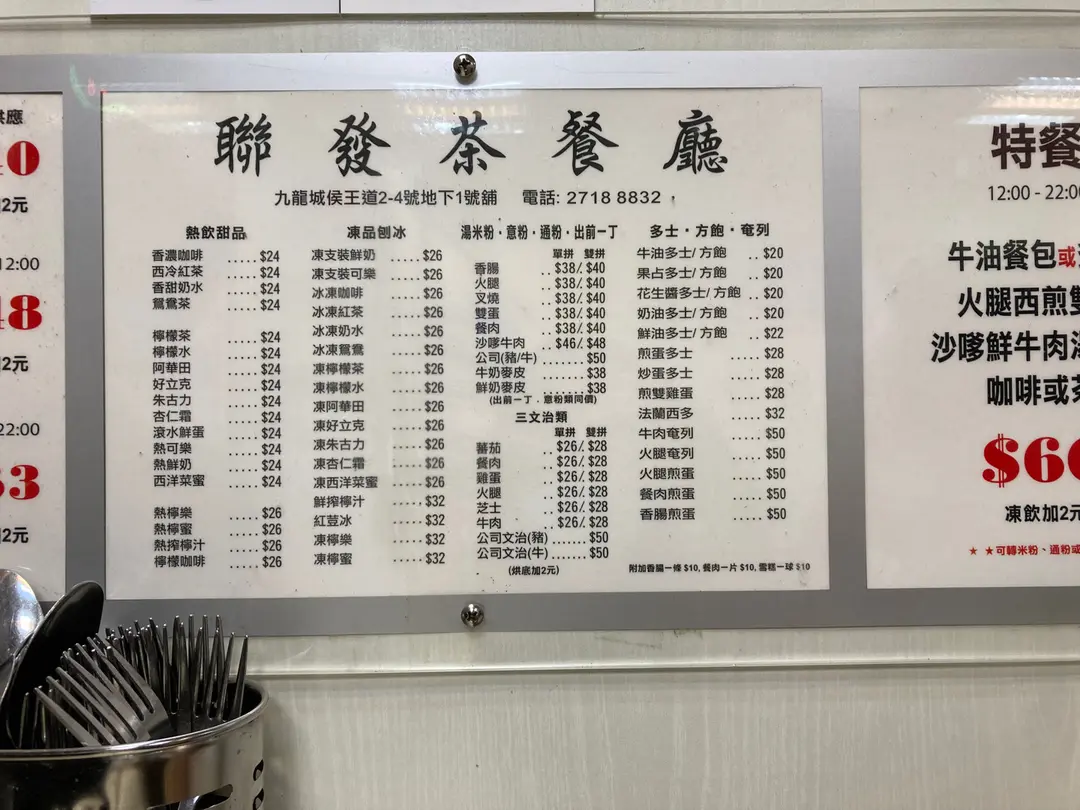 供應
0
2元
12:00
48
2元
22:00
53
2元
聯發茶餐廳
九龍城侯王道2-4號地下1號舖 電話: 2718 8832
熱飲甜品
香濃咖啡 .....$24
西冷紅茶 .....$24
香甜奶水 .....$24
鴛鴦茶 .....$24
檸檬茶 .....$24
檸檬水 .....$24
阿華田 .....$24
好立克 .....$24
朱古力 .....$24
杏仁霜 .....$24
滾水鮮蛋 .....$24
熱可樂 .....$24
熱鮮奶 .....$24
西洋菜蜜 .....$24
熱檸樂 .....$26
熱檸蜜 .....$26
熱搾檸汁 .....$26
檸檬咖啡 .....$26
凍品刨冰
凍支裝鮮奶 .....$26
凍支裝可樂 .....$26
冰凍咖啡 .....$26
冰凍紅茶 .....$26
冰凍奶水 .....$26
冰凍鴛鴦 .....$26
凍檸檬茶 .....$26
凍檸檬水 .....$26
凍阿華田 .....$26
凍好立克 .....$26
凍朱古力 .....$26
凍杏仁霜 .....$26
凍西洋菜蜜 .....$26
鮮搾檸汁 .....$32
紅荳冰 .....$32
凍檸樂 .....$32
凍檸蜜 .....$32
湯米粉・意粉・通粉・出前一丁
單拼 雙拼
香腸 ..$38/ $40
火腿 ..$38/ $40
叉燒 ..$38/ $40
雙蛋 ..$38/ $40
餐肉 ..$38/ $40
沙嗲牛肉 ..$46/ $48
公司(豬/牛) .......$50
牛奶麥皮 .......$38
鮮奶麥皮 .......$38
(出前一丁．意粉類同價)
三文治類
單拼 雙拼
蕃茄 ..$26/ $28
餐肉 ..$26/ $28
雞蛋 ..$26/ $28
火腿 ..$26/ $28
芝士 ..$26/ $28
牛肉 ..$26/ $28
公司文治(豬) .......$50
公司文治(牛) .......$50
(烘底加2元)
多士・方飽・奄列
牛油多士/方飽 ..$20
果占多士/方飽 ..$20
花生醬多士/方飽 ..$20
奶油多士/方飽 ..$20
鮮油多士/方飽 ..$22
煎蛋多士 .....$28
炒蛋多士 .....$28
煎雙雞蛋 .....$28
法蘭西多 .....$32
牛肉奄列 .....$50
火腿奄列 .....$50
火腿煎蛋 .....$50
餐肉煎蛋 .....$50
香腸煎蛋 .....$50
附加香腸一條 $10, 餐肉一片 $10, 雪糕一球 $10
特餐
12:00 - 22:00
牛油餐包或
火腿西煎雙
沙嗲鮮牛肉
咖啡或茶
$60
凍飲加2元
★ ★可轉米粉、通粉或